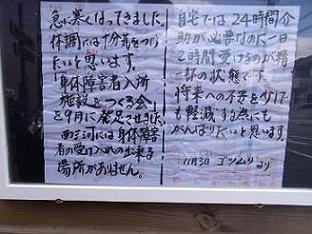 急に寒くなってきました。
体調には十分気をつけ
たいと思います。
「身体障害者入所
施設をつくる会」
を9月に発足させました。
西三河には身体障害
者の受け入れの出来る
場所がありません。
自宅では24時間介
助が必要なのに一日
2時間受けるのが精
一杯の状態です。
将来への不安を少しで
も軽減する為にも
がんばりたいと思います。
11月3日 ゴツムリ より